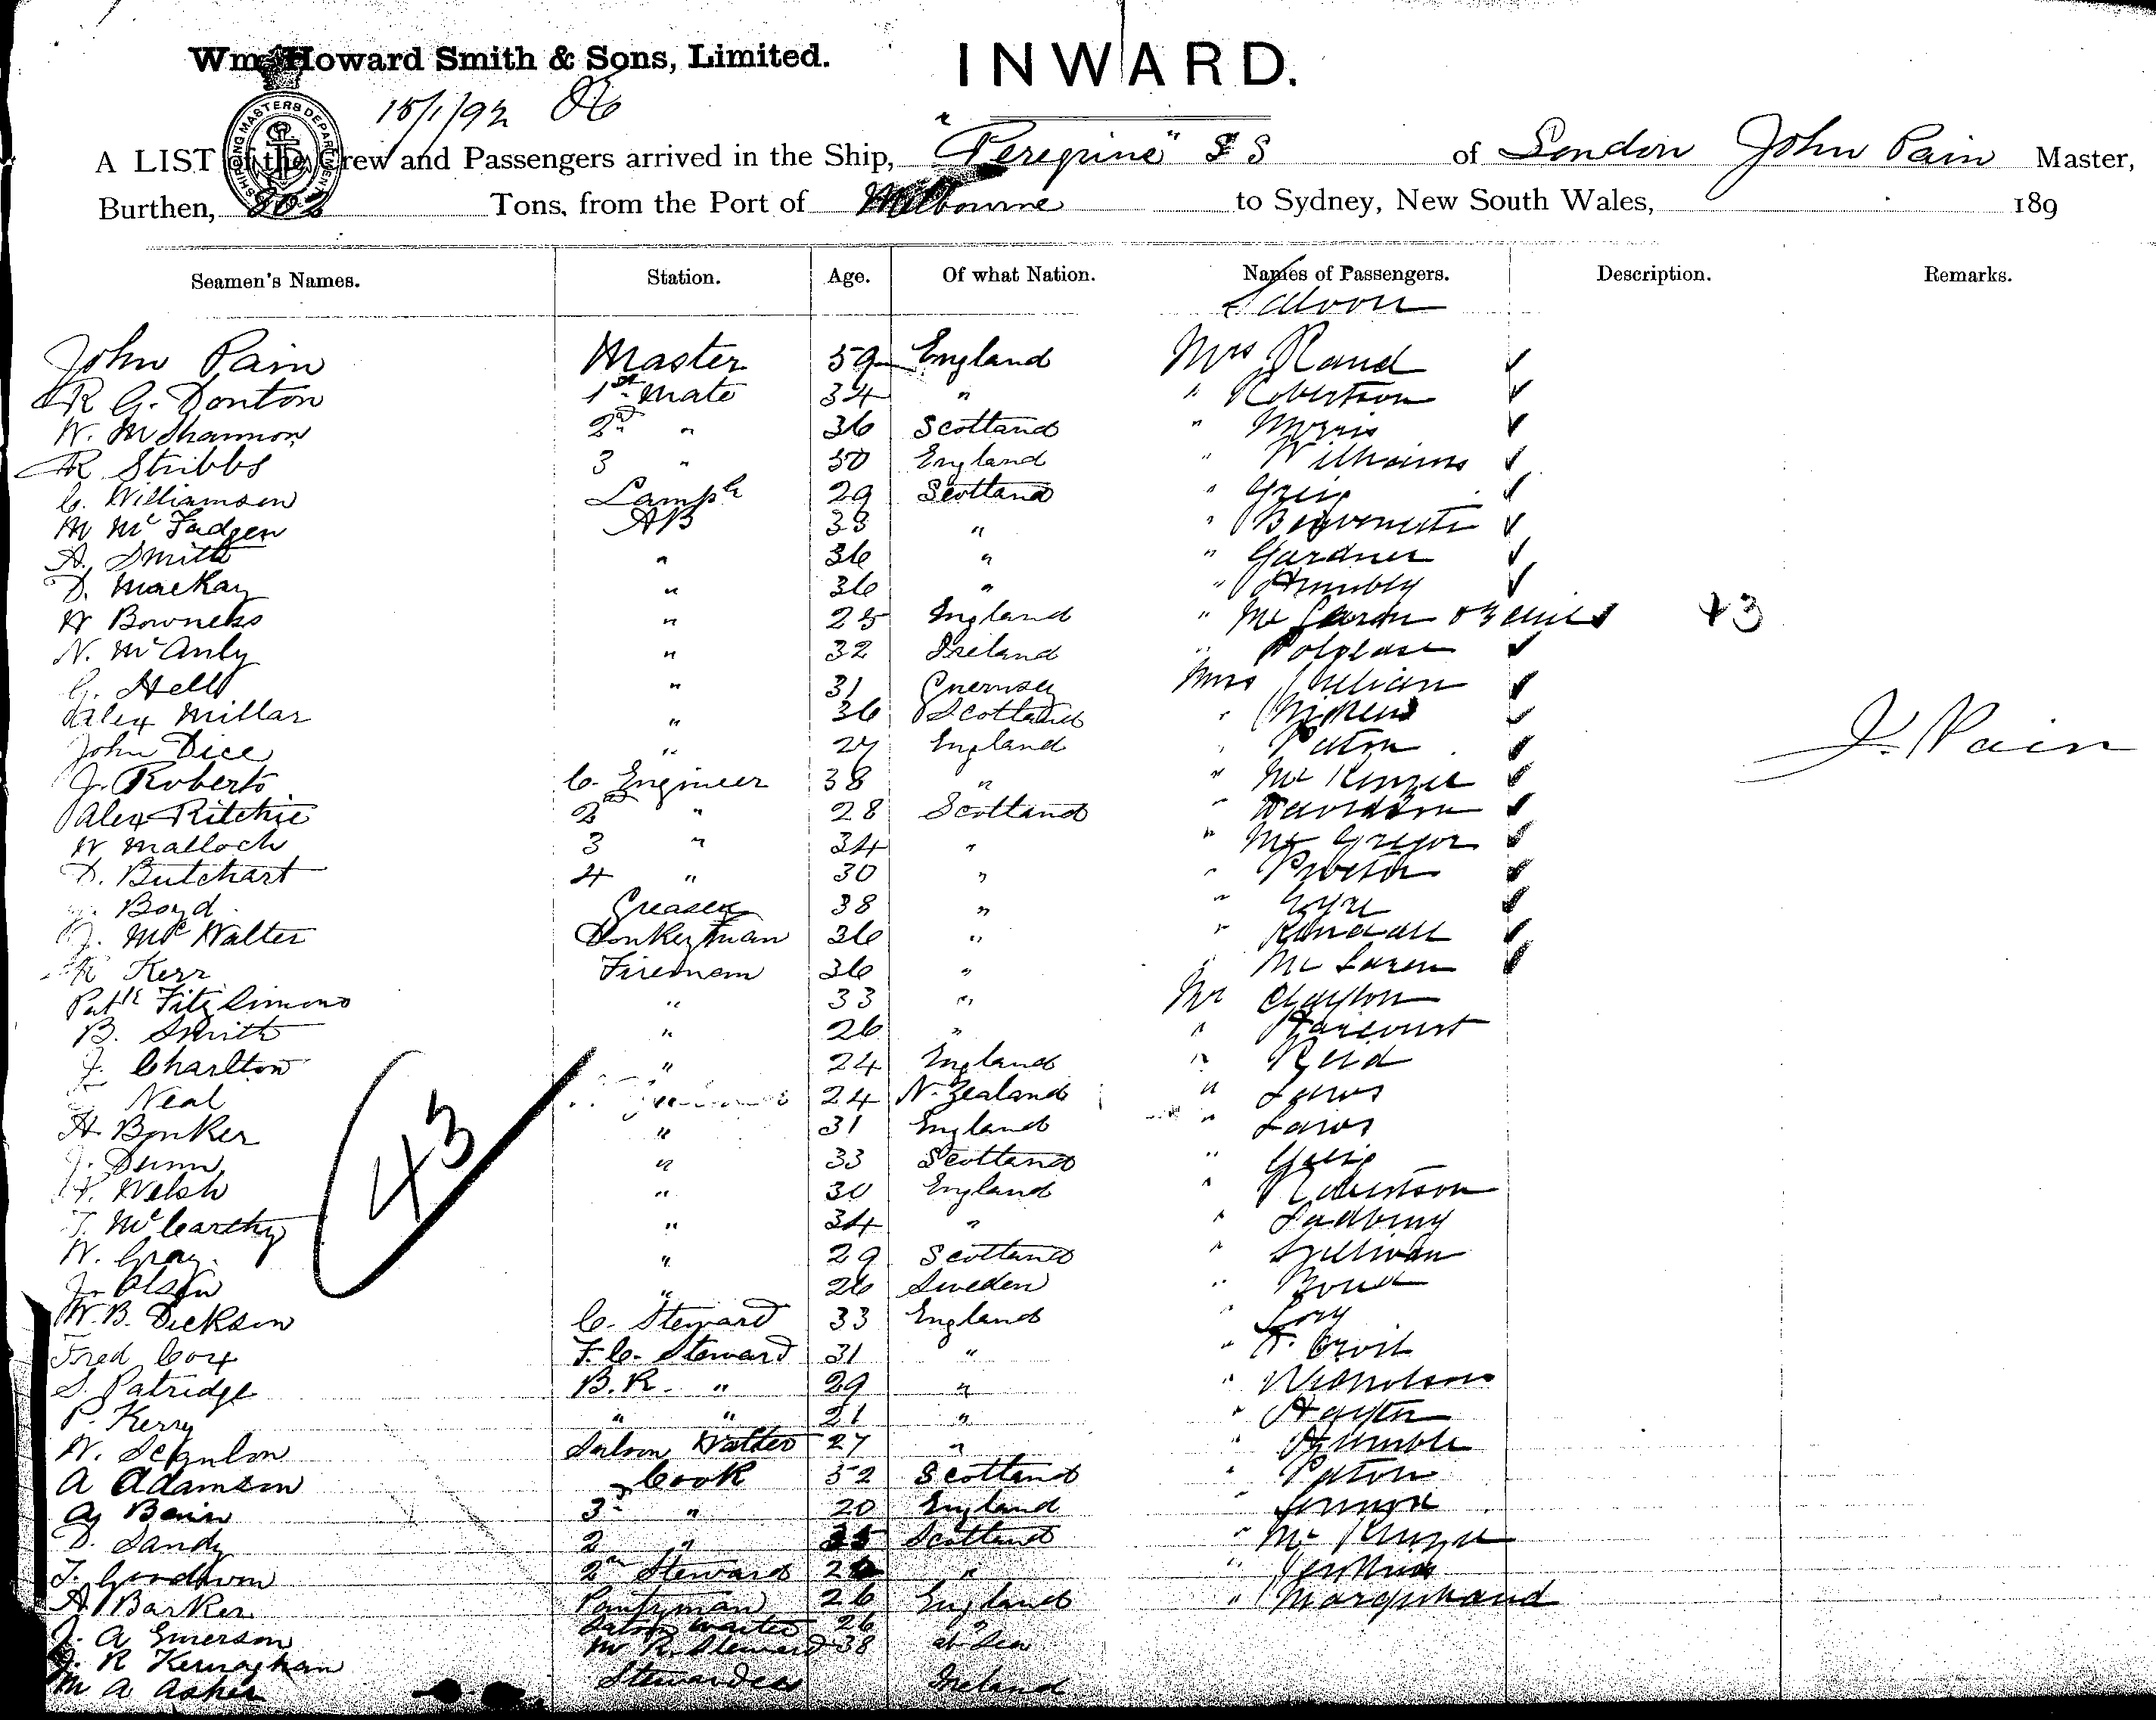 Wm. Howard Smith & Sons, Limited.
INWARD.
15/1/92
SHIPPING MASTERS DEPARTMENT
A LIST of the Crew and Passengers arrived in the Ship, "Peregrine" SS of London John Pain Master,
Burthen, 802 Tons, from the Port of Melbourne to Sydney, New South Wales, 189
Seamen's Names. Station. Age. Of what Nation. Names of Passengers. Description. Remarks.
Saloon
John Pain Master 59 England Mrs Rand ✓
R G. Donton 1st Mate 34 " " Robertson ✓
W. McShannon 2nd " 36 Scotland " Morris ✓
R Stribbs 3 " 50 England " Williams ✓
C. Williamson Lampr 29 Scotland " Greig ✓
M McFadgen AB 33 " " ✓
A. Smith " 36 " " Gardner ✓
D. MacKay " 36 " " ✓
W Bowness " 25 England " Mc ✓ +3
N. McAnly " 32 Ireland " Polglase ✓
G. Hell " 31 Guernsey Miss ✓
Alex Millar " 36 Scotland " ✓
John Dice " 27 England " Paton ✓
J. Pain
J. Roberts C. Engineer 38 " " McKenzie ✓
Alex Ritchie 2nd " 28 Scotland " Davidson ✓
W Malloch 3 " 34 " " McGregor ✓
D. Butchart 4 " 30 " " ✓
Boyd Greaser 38 " " Eyre ✓
J. McWalter Donkeyman 36 " " Randall ✓
R Kerr Fireman 36 " " McLaren ✓
Patk Fitzsimons " 33 " Mr Clayton
B. Smith " 26 " " Harcourt
J. Charlton " 24 England " Reid
Neal 24 N. Zealand " Laws
H. Bonker " 31 England " Laws
J. Dunn " 33 Scotland " Greig
Welsh " 30 England " Robertson
T. McCarthy " 34 " " Sadbury
43
W. Gray " 29 Scotland " Sullivan
J. Olsen " 26 Sweden " Bond
W. B. Dickson C. Steward 33 England "
Fred Cox F. C. Steward 31 " "
S. Patridge B.R. " 29 " " Nicholson
P. Kerry " " 21 " " Hayter
W. Scanlon Saloon Waiter 27 " " Humble
A Adamson Cook 52 Scotland " Paton
Bain 3rd " 20 England "
D. Sandy 2 " 35 Scotland " McKenzie
T. Goodwin 2nd Steward " " Jenkins
A Barker Pantryman 26 England " Marquhand
J. A Emerson Saloon Waiter 26 "
J. R Kernaghan M R. Steward 38 at Sea
M A Asher Stewardess Ireland